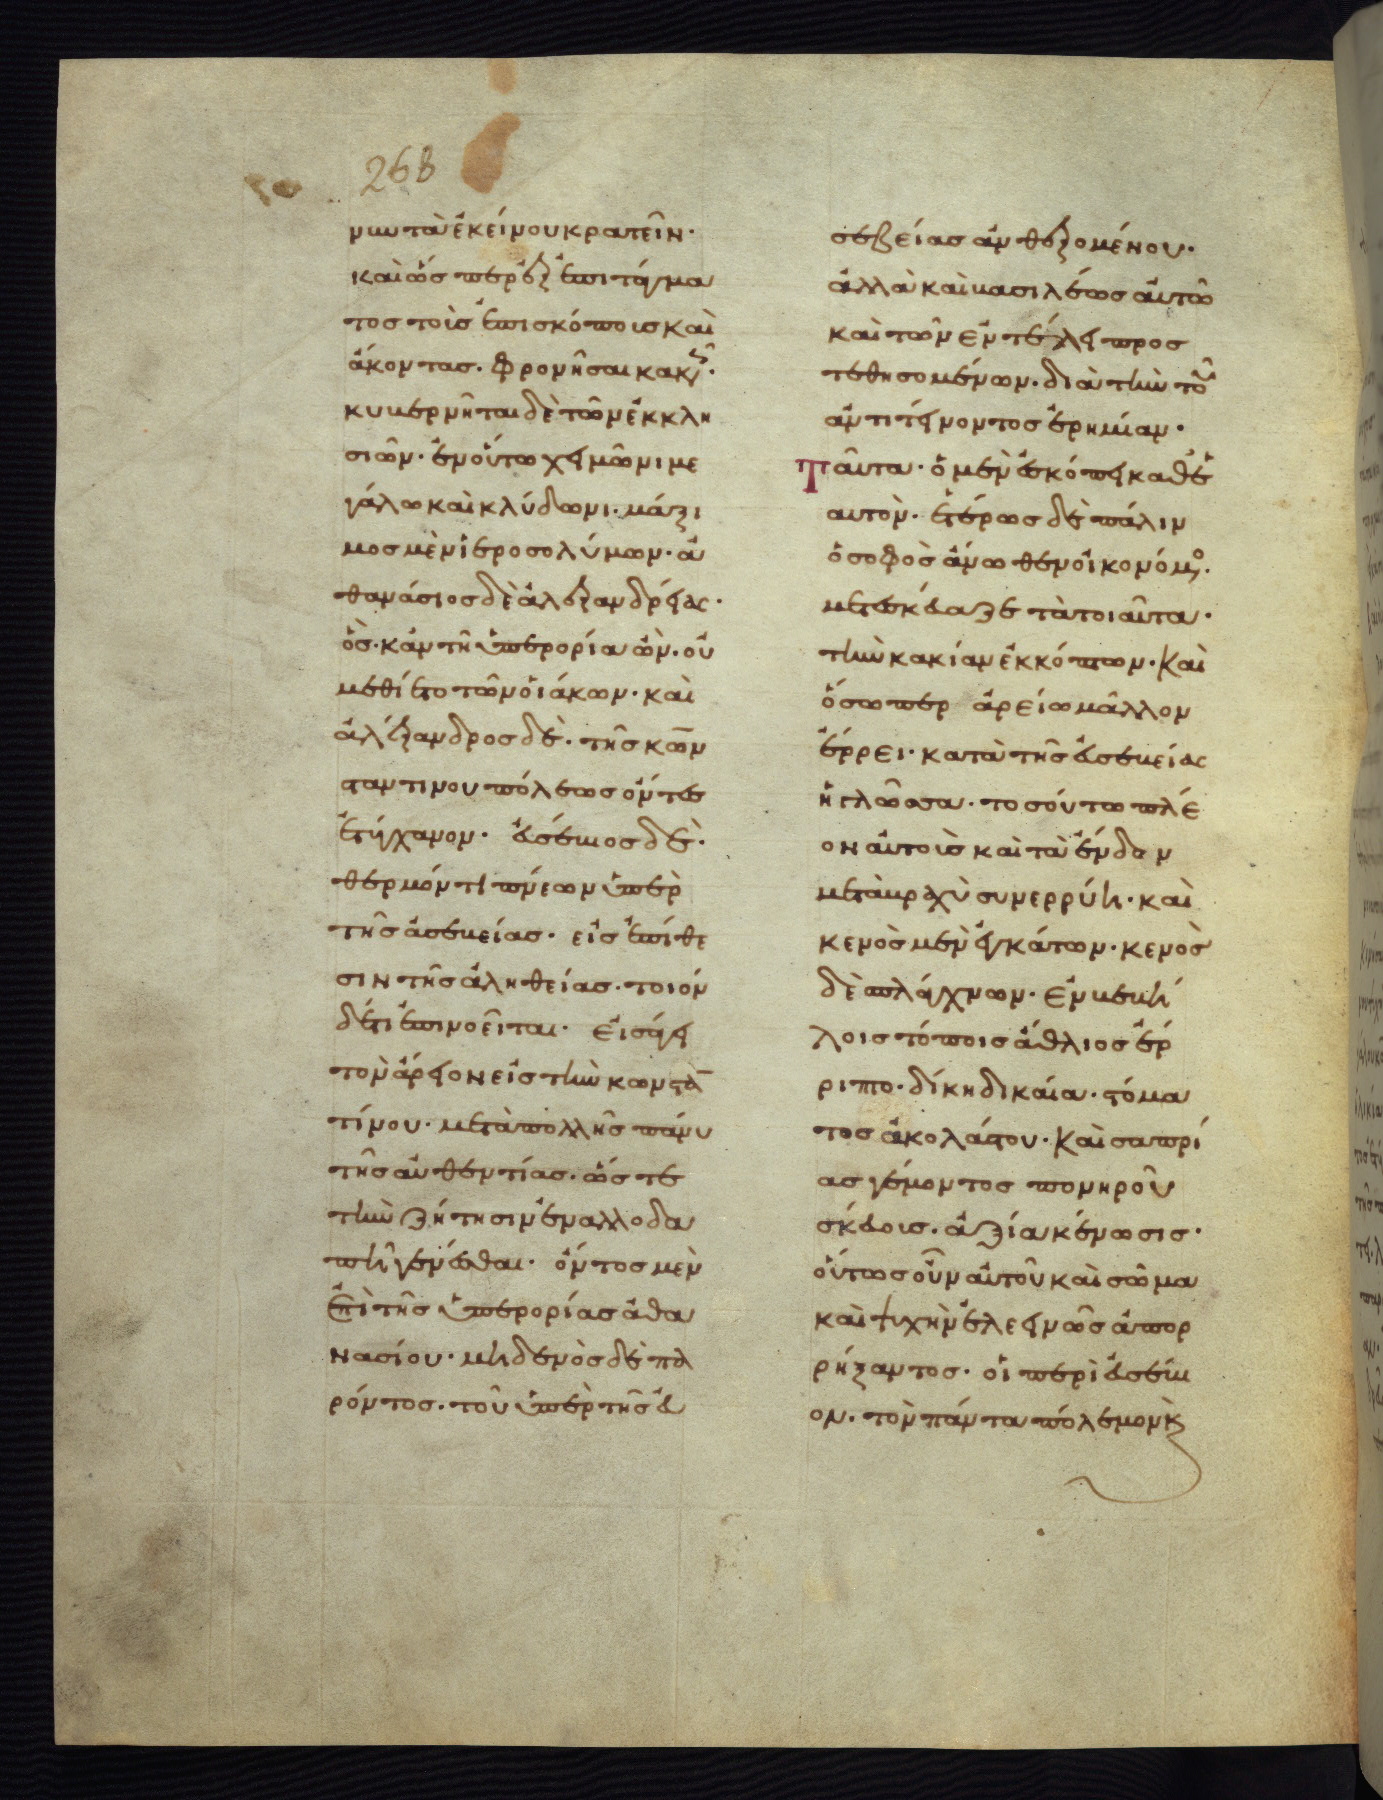 268
νων τὰ ἐκείνου κρατεῖν·
καὶ ὥσπερ ἐξ ἐπιτάγμα
τος τοῖς ἐπισκόποις καὶ
ἄκοντας· φρονῆσαι κακῶς·
κυβερνῆται δὲ τῶν ἐκκλη
σιῶν· ἐν οὕτω χειμῶνι με
γάλω καὶ κλύδωνι· μάξι
μος μὲν ἱεροσολύμων· ἀ
θανάσιος δὲ ἀλεξανδρείας·
ὃς· κἂν τῆ ὑπερορία ὢν· οὐ
μεθίετο τῶν οἰάκων· καὶ
ἀλέξανδρος δὲ· τῆς κων
σταντίνου πόλεως ὄντες
ἐτύγχανον· ἀσέβιος δὲ·
θερμόν τι πνέων ὑπὲρ
τῆς ἀσεβείας· εἰς ἐπίθε
σιν τῆς ἀληθείας· τοιόν
δέ τι ἐπινοεῖται· εἰσάγει
τὸν ἄρειον εἰς τὴν κωνσταν
τίνου· μετὰ πολλῆς πάνυ
τῆς αὐθεντίας· ὥστε
τὴν ζήτησιν ἐν ἀλλοδα
πῆ γενέσθαι· ὄντος μὲν
ἐπὶ τῆς ὑπερορίας ἀθα
νασίου· μηδενὸς δὲ πα
ρόντος· τοῦ ὑπὲρ τῆς εὐ
σεβείας ἀνθεξομένου·
ἀλλὰ καὶ βασιλέως αὐτῶ
καὶ τῶν ἐν τέλει προς
τεθησομένων· διὰ τὴν τοῦ
ἀντιτείνοντος ἐρημίαν·
Ταῦτα· ὁ μὲν ἐσκόπει καθ' ἑ
αυτὸν· ἑτέρως δὲ πάλιν
ὁ σοφὸς ἄνωθεν οἰκονόμος·
μετεσκεύαζε τὰ τοιαῦτα·
τὴν κακίαν ἐκκόπτων· καὶ
ὅσωπερ ἀρείω μᾶλλον
ἔρρει· κατὰ τῆς εὐσεβείας
ἡ γλῶσσα· τοσούτω πλέ
ον αὐτοῖς καὶ τὰ ἔνδον
μεταβραχὺ συνερρύη· καὶ
κενὸς μὲν ἐγκάτων· κενὸς
δὲ σπλάγχνων· ἐν βεβή
λοις τόποις ἄθλιος ἔρ
ριπτο· δίκη δικαία· στόμα
τος ἀκολάστου· καὶ σαπρί
ας γέμοντος πονηροῦ
σκεύοις· ἀξία κένωσις·
οὕτως οὖν αὐτοῦ καὶ σῶμα
καὶ ψυχὴν ἐλεεινῶς ἀπορ
ρήξαντος· οἱ περὶ εὐσέβι
ον· τὸν πάντα πόλεμον κ